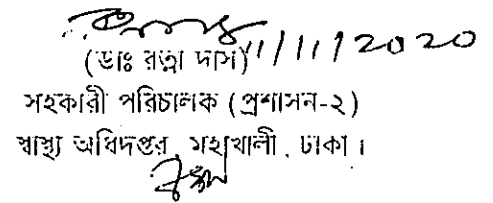 11/11/2020
(ডাঃ রত্না দাস)
সহকারী পরিচালক (প্রশাসন-২)
স্বাস্থ্য অধিদপ্তর, মহাখালী, ঢাকা।